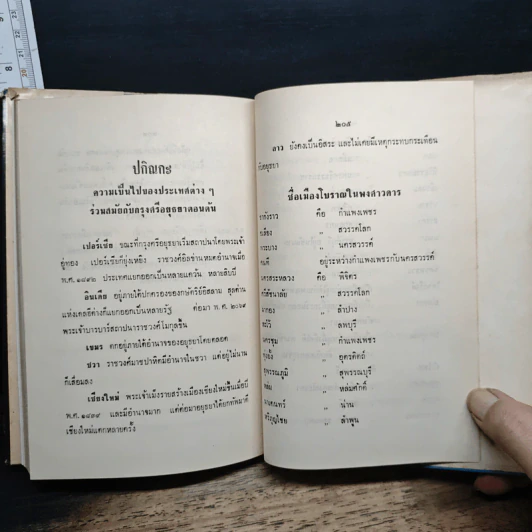 ปกิณกะ
ความเป็นไปของประเทศต่าง ๆ
ร่วมสมัยกับกรุงศรีอยุธยาตอนต้น
เปอร์เซีย ขณะที่กรุงศรีอยุธยาเริ่มสถาปนาโดยพระเจ้า
อู่ทอง เปอร์เซียก็ยุ่งเหยิง ราชวงศ์
พ.ศ. ประเทศแยกออกเป็นหลายแคว้น หลายสิบปี
อินเดีย อยู่ภายใต้ปกครองของกษัตริย์อิสลาม สุดท้าย
แห่งเดลีต่างก็แยกออกเป็นหลายรัฐ ต่อมา พ.ศ. ๒๐๖๙
พระเจ้าบาร์บาร์สถาปนาราชวงศ์โมกุลขึ้น
เขมร ตกอยู่ภายใต้อำนาจของอยุธยาโดยตลอด
ชวา ราชวงศ์มาชปาหิตมีอำนาจในชวา แต่อยู่ไม่นาน
ก็เสื่อมลง
เชียงใหม่ พระเจ้าเม็งรายสร้างเมืองเชียงใหม่ขึ้นเมื่อปี
พ.ศ. ๑๘๓๙ และมีอำนาจมาก แต่ต่อมาอยุธยาได้ยกทัพมาตี
เชียงใหม่แตกหลายครั้ง
๒๐๕
ลาว ยังคงเป็นอิสระ และไม่เคยมีเหตุกระทบกระเทือน
กับอยุธยา
ชื่อเมืองโบราณในพงศาวดาร
คือ กำแพงเพชร
" สวรรคโลก
" นครสวรรค์
อยู่ระหว่างกำแพงเพชรกับนครสวรรค์
นครสระหลวง คือ พิจิตร
ศรีสัชนาลัย " สวรรคโลก
" ลำปาง
ละโว้ " ลพบุรี
นครชุม " กำแพงเพชร
" อุตรดิตถ์
สุพรรณภูมิ " สุพรรณบุรี
" หล่มศักดิ์
" น่าน
หริภุญไชย " ลำพูน